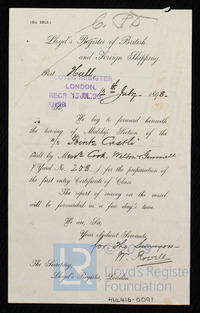 (No. 2818.)
C. F D
Lloyd's Register of British
and Foreign Shipping.
Port Hull
LLOYD'S REGISTER
LONDON,
RECD 13 JUL 98
12th July 1898.
Sir,
We beg to forward herewith
the tracing of Midship Section of the
s/s "Bente Castle"
built by Mess. Cook, Welton & Gemmell
(Yard No. 208) for the preparation of
the first entry Certificate of Class.
The report of survey on the vessel
will be forwarded in a few day's time.
We are, Sir,
Your obedient Servants,
for The Surveyors
The Secretary,
Lloyd's Register, London.
Lloyd's Register
Foundation
HUL416-0091